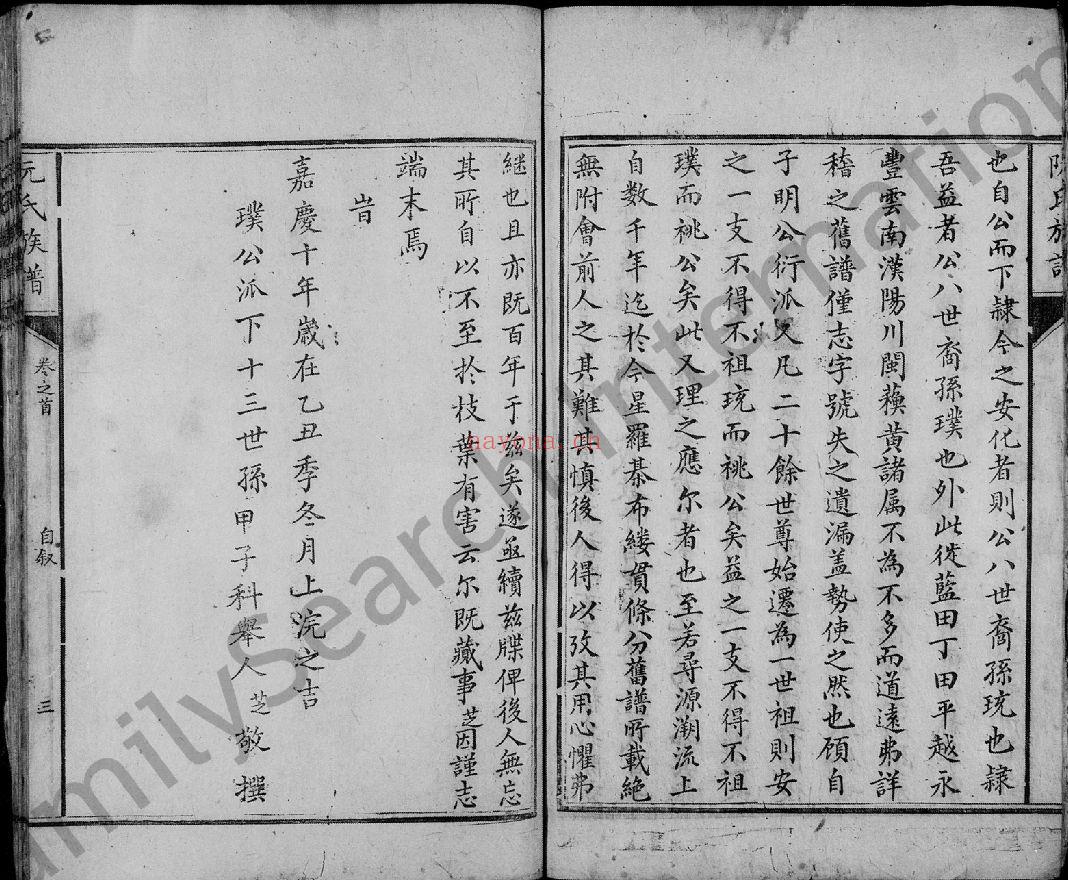 也自公而下隸今之安化者則公八世裔孫琉也隸
吾益者公八世裔孫璞也外此從藍田丁田平越永
豐雲南漢陽川閩蘋黃諸属不為不多而道遠弗詳
稽之舊譜僅志字號失之遺漏盖勢使之然也頋自
子明公衍派又凡二十餘世尊始遷為一世祖則安
之一支不得不祖琉而祧公矣益之一支不得不祖
璞而祧公矣此又理之應尔者也至若尋源溯流上
自数千年迄於今星羅棊布縷貫條分舊譜所載絶
無附會前人之其難其慎後人得以攷其用心懼弗
継也且亦既百年于兹矣遂亟續兹牒俾後人無忘
其所自以不至於枝葉有害云尔既蕆事芝因謹志
端末焉
旹
嘉慶十年歲在乙丑季冬月上浣之吉
璞公派下十三世孫甲子科舉人芝敬撰
氏族譜
卷之首
自叙
三
nayona.cn
FamilySearch International